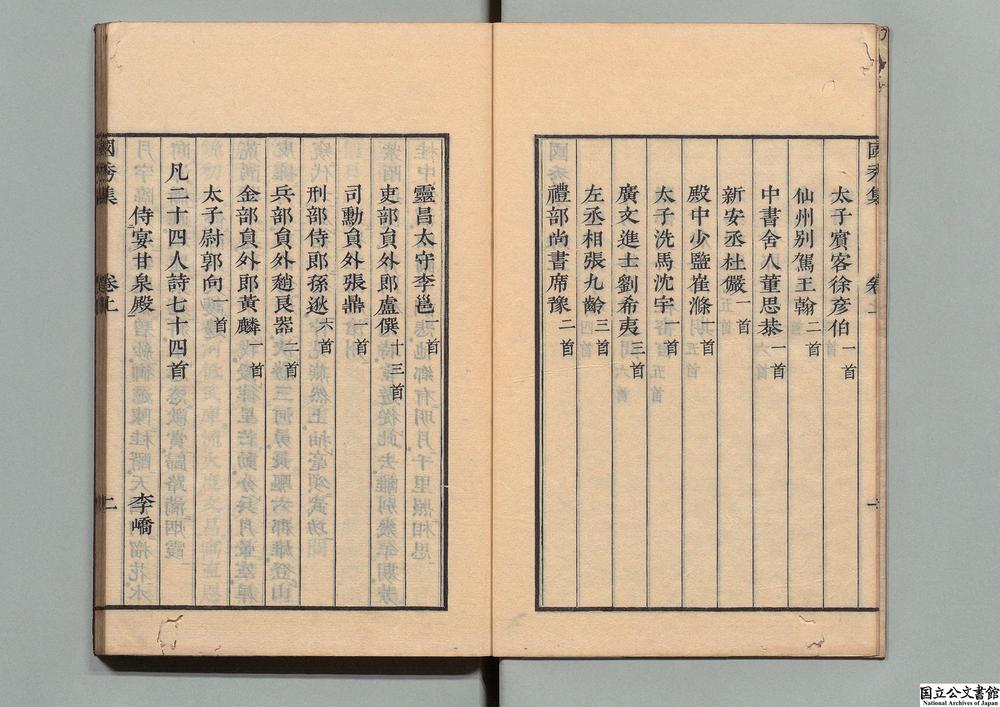 國秀集 卷上 一
太子賓客徐彦伯一首
仙州别駕王翰二首
中書舍人董思恭一首
新安丞杜儼一首
殿中少監崔滌一首
太子洗馬沈宇一首
廣文進士劉希夷三首
左丞相張九齡三首
禮部尚書席豫二首
靈昌太守李邕一首
吏部員外郎盧僎十三首
司勳員外張鼎一首
刑部侍郎孫逖六首
兵部員外趙良器二首
金部員外郎黄麟一首
太子尉郭向一首
凡二十四人詩七十四首
侍宴甘泉殿 李嶠
國秀集 卷上 二
国立公文書館
National Archives of Japan